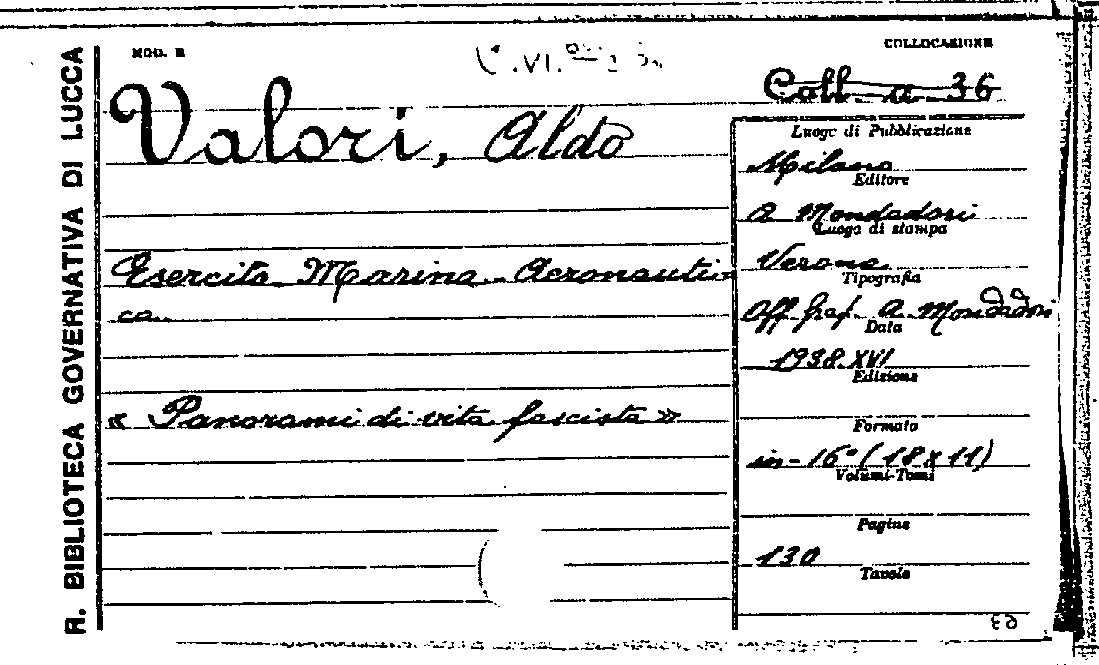 R. BIBLIOTECA GOVERNATIVA DI LUCCA
MOD. B
COLLOCAZIONE
Coll. a 36
Valori, Aldo
Esercito Marina Aeronauti
ca
« Panorami di vita fascista »
Luogo di Pubblicazione
Milano
Editore
A Mondadori
Luogo di stampa
Verona
Tipografia
Off graf. A. Mondadori
Data
1938.XVI
Edizione
Formato
in-16° (18x11)
Volumi-Tomi
Pagine
130
Tavole